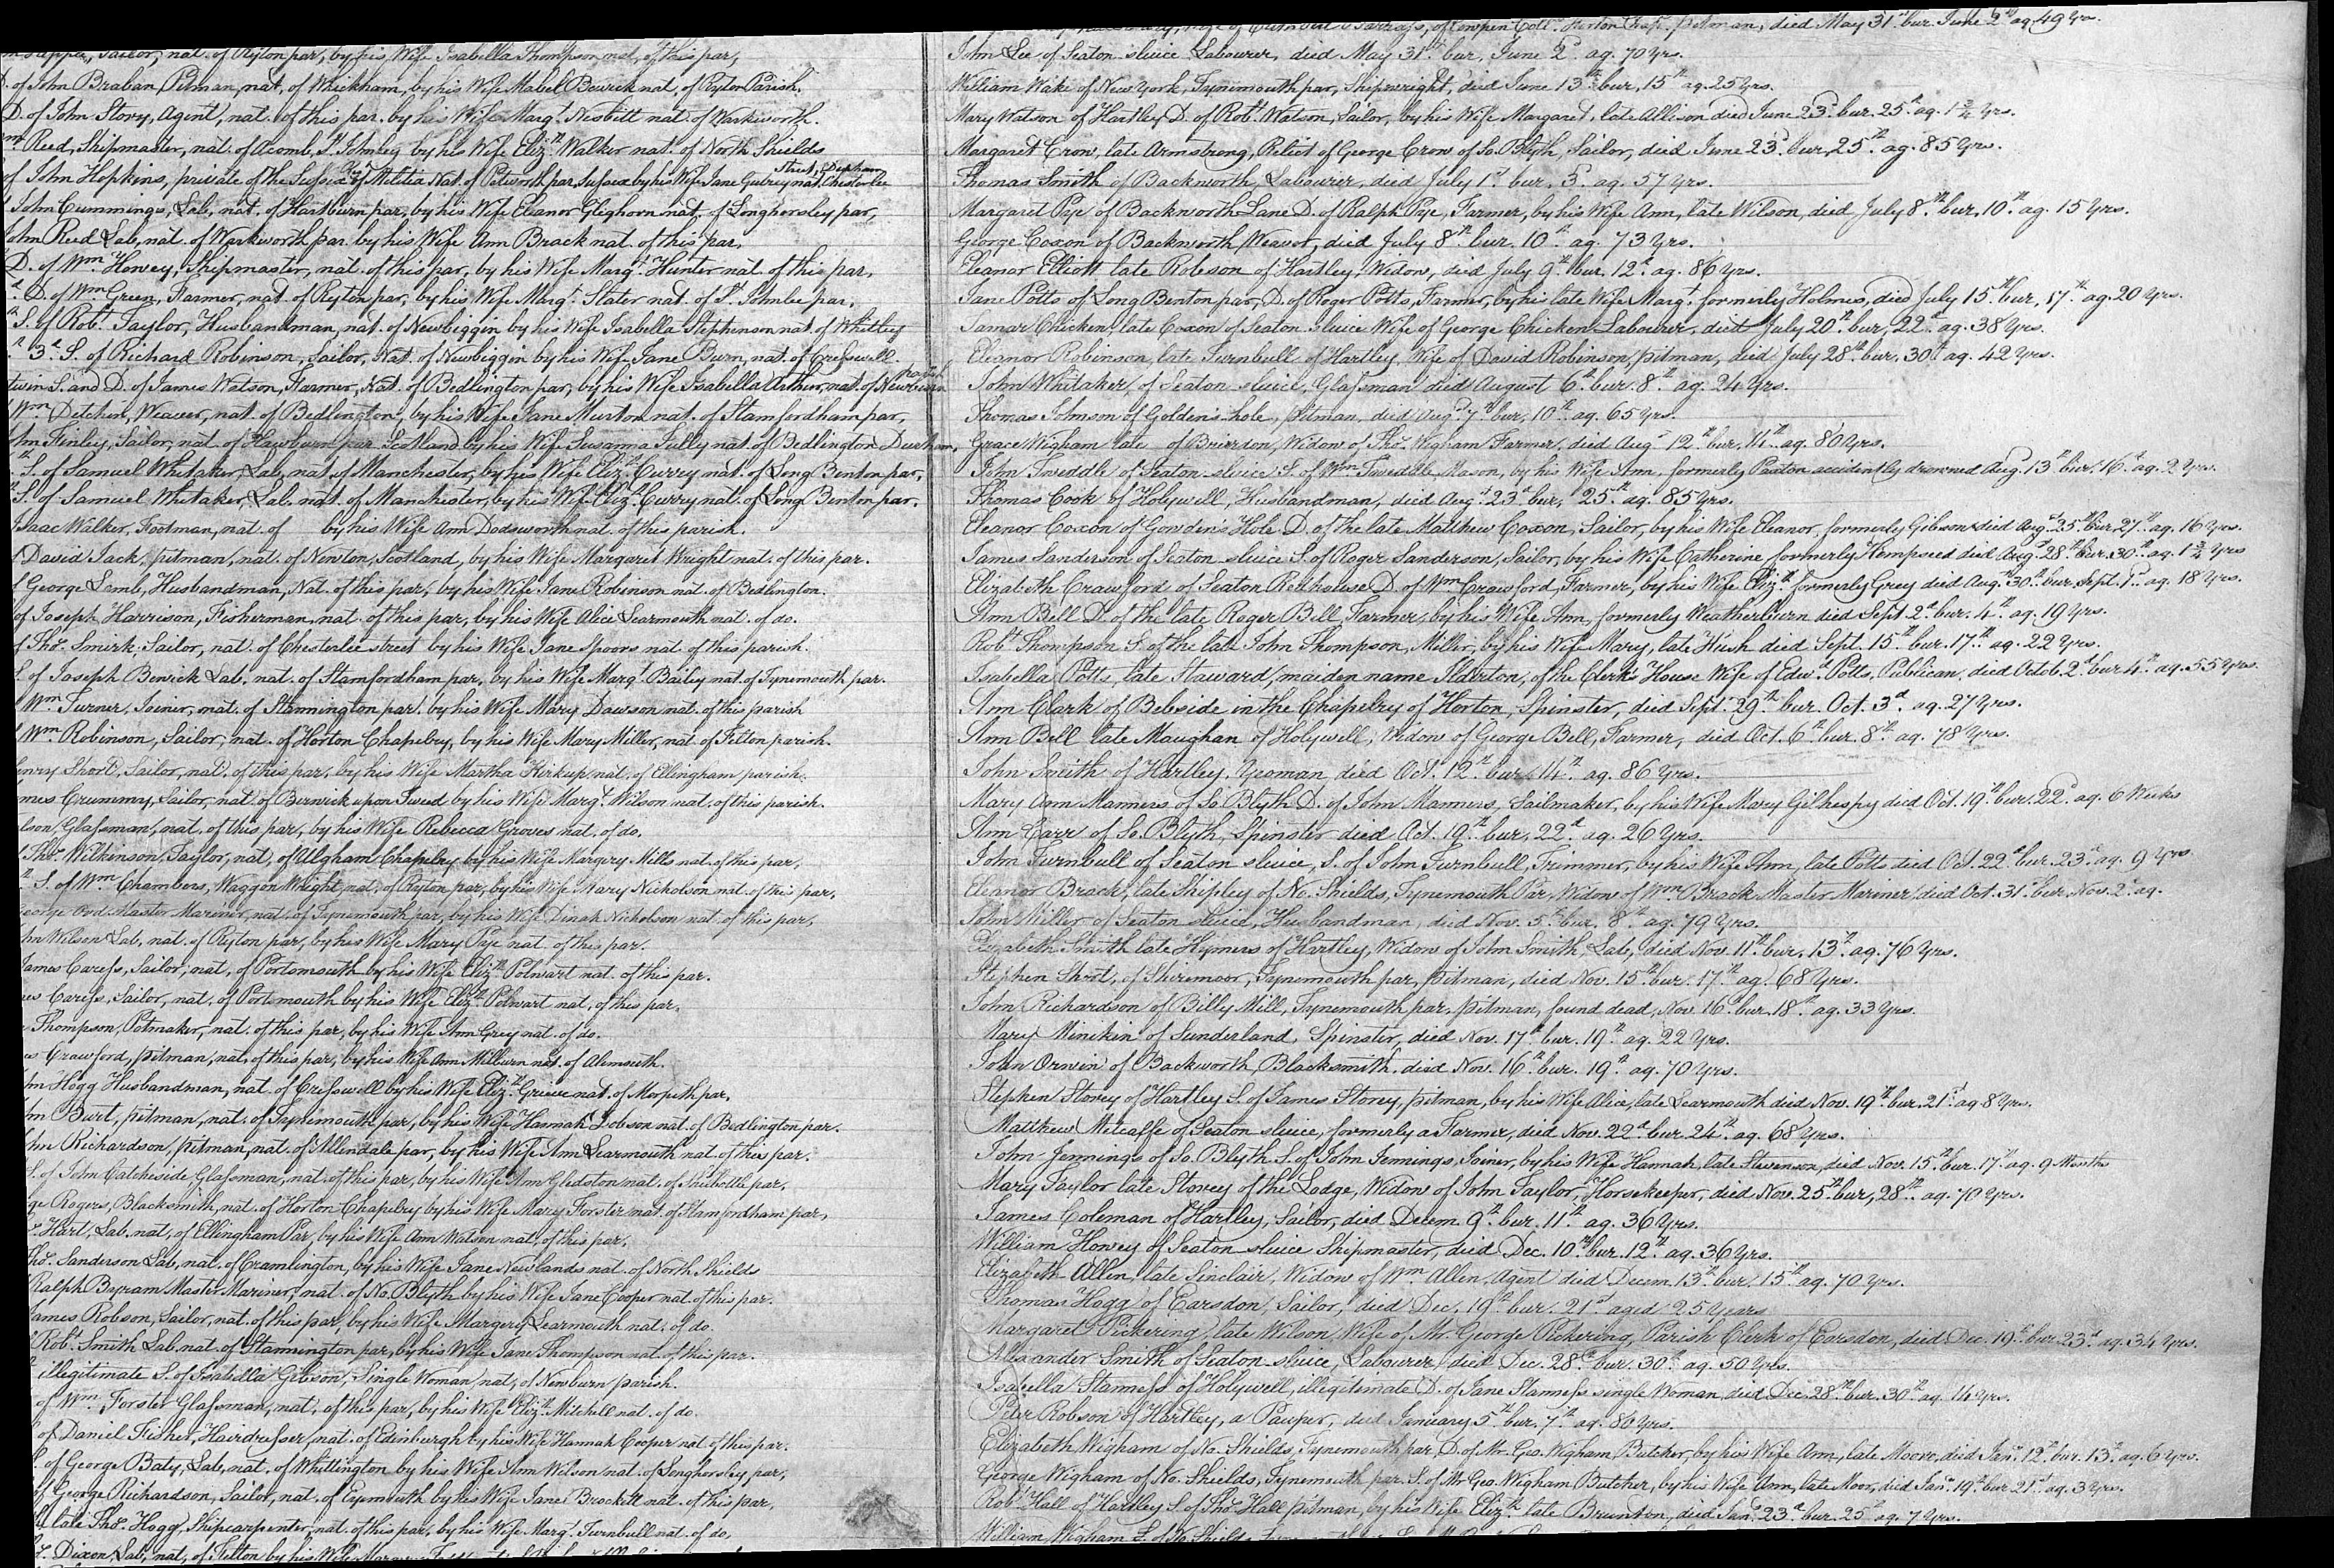 Sailor, nat. of Ryton par, by his Wife Isabella Thompson nat. of this par,
of John Braban Pitman, nat. of Whickham, by his Wife Mabel Bewick nat. of Ryton Parish.
D. of John Story, Agent, nat. of this par. by his Wife Margt. Nesbitt nat. of Warkworth.
Reed, Shipmaster, nat. of Acomb, St. Johnley by his Wife Elizth. Walker nat. of North Shields
of John Hopkins, private of the Sussex Militia Nat. of Petworth par, Sussex by his Wife Jane nat. Chesterlee Street, Durham
John Cummings, Lab, nat. of Hartburn par, by his Wife Eleanor Gleghorn nat, of Longhorsley par,
John Reed Lab, nat. of Warkworth par. by his Wife Ann Brack nat. of this par,
D. of Wm. Howey, Shipmaster, nat. of this par, by his Wife Margt. Hunter nat. of this par,
D. of Wm. Green, Farmer, nat. of Ryton par, by his Wife Margt. Stater nat. of St. Johnlee par,
S. of Robt. Taylor, Husbandman, nat. of Newbiggin by his Wife Isabella Stephenson nat. of Whitley
3d. S. of Richard Robinson, Sailor, Nat. of Newbiggin by his Wife Jane Burn, nat. of Cresswell.
twin S. and D. of James Watson, Farmer, Nat. of Bedlington par, by his Wife Isabella Arthur, nat. of
Wm. Ditchin, Weaver, nat. of Bedlington, by his Wife Jane Murton nat. of Stamfordham par,
Finley, Sailor, nat. of par. Scotland by his Wife Susanna Selly nat. of Bedlington Durham,
S. of Samuel Whitaker, Lab, nat. of Manchester, by his Wife Elizth. Curry nat. of Long Benton par,
S. of Samuel Whitaker, Lab. nat. of Manchester, by his Wife Elizth. Curry nat. of Long Benton par.
Isaac Walker, Footman, nat. of by his Wife Ann Dodsworth nat. of this parish.
David Jack, pitman, nat. of Newton, Scotland, by his Wife Margaret Wright nat. of this par.
George Lamb, Husbandman, Nat. of this par, by his Wife Jane Robinson nat. of Bedlington.
of Joseph Harrison, Fisherman, nat. of this par, by his Wife Alice Learmouth nat. of do.
Thos. Smirk, Sailor, nat. of Chesterlee street by his Wife Jane Spoors nat. of this parish.
of Joseph Bewick Lab. nat. of Stamfordham par, by his Wife Margt. Bailey nat. of Tynemouth par.
Wm. Turner, Joiner, nat. of Stannington par. by his Wife Mary Dawson nat. of this parish
Wm. Robinson, Sailor, nat. of Horton Chapelry, by his Wife Mary Miller, nat. of Felton parish.
Short, Sailor, nat. of this par, by his Wife Martha Kirkup nat. of Ellingham parish.
Crummy, Sailor, nat. of Berwick upon Tweed by his Wife Margt. Wilson nat. of this parish.
Glassman, nat. of this par, by his Wife Rebecca Groves nat. of do.
Thos. Wilkinson, Taylor, nat, of Ulgham Chapelry by his Wife Margery Mills nat. of this par,
S. of Wm. Chambers, Waggon Wright nat. of Ryton par, by his Wife Mary Nicholson nat. of this par,
George Ord Master Mariner, nat. of Tynemouth par, by his Wife Dinah Nicholson nat. of this par,
Wilson Lab, nat. of Ryton par, by his Wife Mary Pye nat. of this par.
James Caress, Sailor, nat. of Portsmouth by his Wife Elizth. Polwart nat. of this par.
Caress, Sailor, nat. of Portsmouth by his Wife Elizth. Polwart nat. of this par.
Thompson, Potmaker, nat. of this par, by his Wife Ann Grey nat. of do.
Crawford, pitman, nat. of this par, by his Wife Ann Milburn nat. of Alemouth.
Hogg Husbandman, nat. of Cresswell by his Wife Elizth. Grieve nat. of Morpeth par,
Burt, pitman, nat. of Tynemouth par, by his Wife Hannah Dobson nat. of Bedlington par.
Richardson, pitman, nat. of Allendale par, by his Wife Ann Learmouth nat. of this par.
S. of John Catcheside, Glassman, nat. of this par, by his Wife Ann Gledston nat. of Shilbottle par,
Rogers, Blacksmith, nat. of Horton Chapelry by his Wife Mary Forster nat. of Stamfordham par,
Hart, Lab, nat, of Ellingham Par, by his Wife Ann Watson nat. of this par,
Thos. Sanderson Lab, nat. of Cramlington, by his Wife Jane Newlands nat. of North Shields
Ralph Byram Master Mariner, nat. of No. Blyth by his Wife Jane Cooper nat. of this par.
James Robson, Sailor, nat. of this par, by his Wife Margery Learmouth nat. of do.
Robt. Smith Lab. nat. of Stannington par, by his Wife Jane Thompson nat. of this par.
illegitimate S. of Isabella Gibson, Single Woman nat, of Newburn parish.
of Wm. Forster Glassman, nat, of this par, by his Wife Elizth. Mitchell nat. of do.
of Daniel Fisher, Hairdresser, nat. of Edinburgh by his Wife Hannah Cooper nat. of this par.
of George Baty, Lab, nat. of Whittington by his Wife Ann Wilson nat. of Longhorsley par,
George Richardson, Sailor, nat. of Eyemouth by his Wife Jane Brockett nat. of this par,
late Thos. Hogg, Shipcarpenter, nat. of this par, by his Wife Margt. Turnbull nat. of do,
Dixon, Lab, nat, of Felton by his Wife
Horton Chap. pitman, died May 31st. bur. June 2nd. ag. 49 Yrs.
John Lee of Seaton sluice Labourer, died May 31st. bur. June 2d. ag. 70 Yrs.
William Wake of New York, Tynemouth par, Shipwright, died June 13th. bur, 15th. ag. 25 Yrs.
Mary Watson of Hartley D. of Robt. Watson, Sailor, by his Wife Margaret, late Allison died June 23d. bur. 25th. ag. 1 3/4 Yrs.
Margaret Crow, late Armstrong, Relict of George Crow of So. Blyth, Sailor, died June 23d. bur, 25th. ag. 85 Yrs.
Thomas Smith of Backworth, Labourer, died July 1st. bur. 3d. ag. 57 Yrs.
Margaret Pye of Backworth Lane D. of Ralph Pye, Farmer, by his Wife Ann, late Wilson, died July 8th. bur, 10th. ag. 15 Yrs.
George Coxon of Backworth, Weaver, died July 8th. bur. 10th. ag. 73 Yrs.
Eleanor Elliott late Robson of Hartley, Widow, died July 9th. bur. 12th. ag. 86 Yrs.
Jane Potts of Long Benton par, D. of Roger Potts, Farmer, by his late Wife Margt. formerly Holmes, died July 15th. bur, 17th. ag. 20 Yrs.
Tamar Chicken, late Coxon of Seaton sluice Wife of George Chicken Labourer, died July 20th. bur, 22d. ag. 38 Yrs.
Eleanor Robinson, late Turnbull of Hartley, Wife of David Robinson, pitman, died July 28th. bur. 30th. ag. 42 Yrs.
John Whitaker, of Seaton sluice, Glassman died August 6th. bur. 8th. ag. 24 Yrs.
Thomas Johnson of Golden's hole, pitman, died Augt. 7th. bur, 10th. ag. 65 Yrs.
Grace Wigham late of Brierdon, Widow of Thos. Wigham Farmer, died Augt. 12th. bur, 14th. ag. 80 Yrs.
John Tweddle of Seaton sluice, S. of Wm. Tweddle, Mason, by his Wife Ann, formerly Paxton accidently drowned Augt. 13th. bur. 16th. ag. 2 Yrs.
Thomas Cook of Holywell, Husbandman, died Augt. 23d. bur, 25th. ag. 85 Yrs.
Eleanor Coxon of Gowden's Hole D. of the late Matthew Coxon, Sailor, by his Wife Eleanor, formerly Gibson died Augt. 25th. bur. 27th. ag. 16 Yrs.
James Sanderson of Seaton sluice S. of Roger Sanderson, Sailor, by his Wife Catherine, formerly Hempseed died Augt. 28th. bur. 30th. ag. 1 3/4 Yrs
Elizabeth Crawford of Seaton Redhouse D. of Wm. Crawford, Farmer, by his Wife Elizth. formerly Grey died Augt. 30th. bur. Sept. 1st. ag. 18 Yrs.
Ann Bell D. of the late Roger Bell, Farmer, by his Wife Ann, formerly Weatherburn died Sept. 2d. bur. 4th. ag. 19 Yrs.
Robt. Thompson S. of the late John Thompson, Miller, by his Wife Mary, late Hush died Sept. 15th. bur. 17th. ag. 22 Yrs.
Isabella Potts, late Staward, maiden name Ilderton, of the Clerk's House Wife of Edwd. Potts, Publican, died Octob. 2d. bur 4th. ag. 55 Yrs.
Ann Clark of Bebside in the Chapelry of Horton, Spinster, died Sept. 29th. bur. Oct. 3d. ag. 27 Yrs.
Ann Bell late Maughan of Holywell, Widow of George Bell, Farmer, died Oct. 6th. bur. 8th. ag. 78 Yrs.
John Smith of Hartley, Yeoman, died Oct. 12th. bur. 14th. ag. 86 Yrs.
Mary Ann Manners of So. Blyth D. of John Manners, Sailmaker, by his Wife Mary Gilhespy died Oct. 19th. bur. 22d. ag. 6 Weeks
Ann Carr of So. Blyth, Spinster died Oct. 19th. bur. 22d. ag. 26 Yrs.
John Turnbull of Seaton sluice, S. of John Turnbull, Trimmer, by his Wife Ann, late Potts died Oct. 22d. bur. 23d. ag. 9 Yrs.
Eleanor Brack, late Shipley of No. Shields, Tynemouth Par, Widow of Wm. Brack Master Mariner, died Oct. 31st. bur. Nov. 2d. ag.
John Miller of Seaton sluice, Husbandman, died Nov. 5th. bur. 8th. ag. 79 Yrs.
Elizabeth Smith late Hymers of Hartley, Widow of John Smith, Lab, died Nov. 11th. bur. 13th. ag. 76 Yrs.
Stephen Short, of Shiremoor, Tynemouth par, pitman, died Nov. 15th. bur. 17th. ag. 68 Yrs.
John Richardson of Billy Mill, Tynemouth par, pitman, found dead, Nov. 16th. bur. 18th. ag. 33 Yrs.
Mary Minikin of Sunderland, Spinster, died Nov. 17th. bur. 19th. ag. 22 Yrs.
John Orwin of Backworth, Blacksmith, died Nov. 16th. bur. 19th. ag. 70 Yrs.
Stephen Storey of Hartley S. of James Storey, pitman, by his Wife Alice, late Learmouth died Nov. 19th. bur. 21st. ag. 8 Yrs.
Matthew Metcalfe of Seaton sluice, formerly a Farmer, died Nov. 22d. bur. 24th. ag. 68 Yrs.
John Jennings of So. Blyth S. of John Jennings, Joiner, by his Wife Hannah, late Stevenson, died Nov. 15th. bur. 17th. ag. 9 Months
Mary Taylor late Storey of the Lodge, Widow of John Taylor, Horsekeeper, died Nov. 25th. bur, 28th. ag. 70 Yrs.
James Coleman of Hartley, Sailor, died Decem. 9th. bur. 11th. ag. 36 Yrs.
William Howey of Seaton sluice Shipmaster, died Dec. 10th. bur. 12th. ag. 36 Yrs.
Elizabeth Allen, late Sinclair, Widow of Wm. Allen, Agent died Decem. 13th. bur. 15th. ag. 70 Yrs.
Thomas Hogg of Earsdon, Sailor, died Dec. 19th. bur. 21st. aged 25 Years
Margaret Pickering, late Wilson, Wife of Mr. George Pickering, Parish Clerk of Earsdon, died Dec. 19th. bur. 23d. ag. 34 Yrs.
Alexander Smith of Seaton sluice, Labourer, died Dec. 28th. bur. 30th. ag. 50 Yrs.
Isabella Stanness of Holywell, illegitimate D. of Jane Stanness single Woman, died Dec. 28th. bur. 30th. ag. 14 Yrs.
Peter Robson of Hartley, a Pauper, died January 5th. bur. 7th. ag. 80 Yrs.
Elizabeth Wigham of No. Shields, Tynemouth par. D. of Mr. Geo. Wigham, Butcher, by his Wife Ann, late Moore, died Jany. 12th. bur. 13th. ag. 6 Yrs.
George Wigham of No. Shields, Tynemouth par. S. of Mr. Geo. Wigham Butcher, by his Wife Ann, late Moor, died Jany. 19th. bur 21st. ag. 3 Yrs.
Robt. Hall of Hartley S. of Thos. Hall pitman, by his Wife Elizth. late Brunton, died Jany. 23d. bur. 25th. ag. 7 Yrs.
William Wigham S. of No. Shields